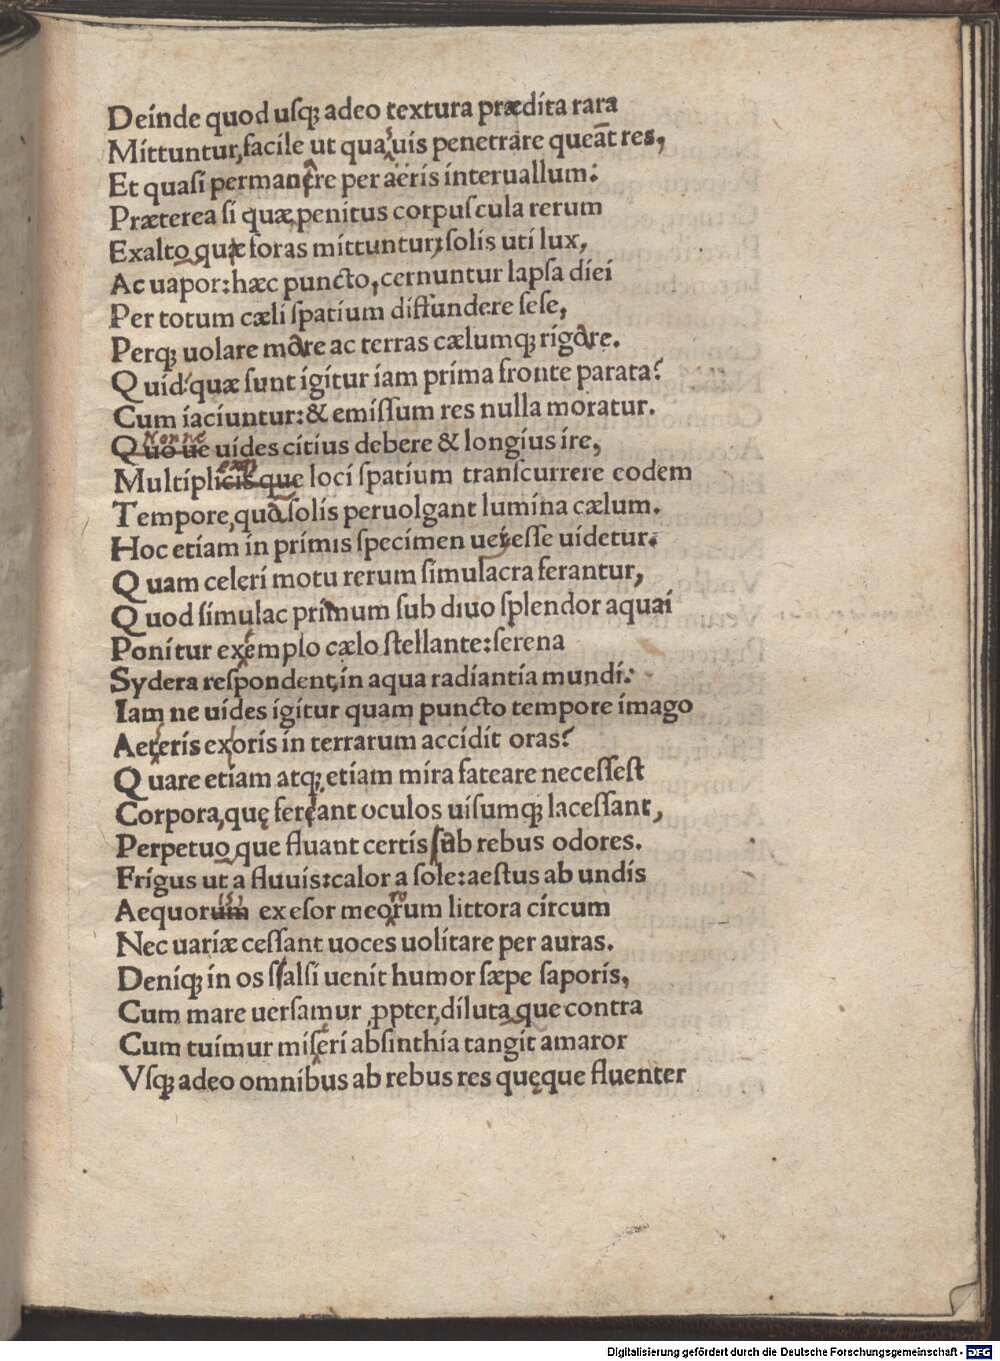 Deinde quod uſq; adeo textura prædita rara
Mittuntur, facile ut quaſuis penetrare queāt res,
Et quaſi permanare per aeris interuallum:
Præterea ſi quæ penitus corpuſcula rerum
Exalto, quæ foras mittuntur, ſolis uti lux,
Ac uapor: hæc puncto, cernuntur lapſa diei
Per totum cæli ſpatium diffundere ſeſe,
Perq; uolare mare ac terras cælumq; rigare.
Quid? quæ ſunt igitur iam prima fronte parata?
Cum iaciuntur: & emiſſum res nulla moratur.
Nonne
Quo ue uides citius debere & longius ire,
Multiplicis que loci ſpatium tranſcurrere eodem
Tempore, quo ſolis peruolgant lumina cælum.
Hoc etiam in primis ſpecimen uere eſſe uidetur.
Quam celeri motu rerum ſimulacra ferantur,
Quod ſimulac primum ſub diuo ſplendor aquai
Ponitur exemplo cælo ſtellante: ſerena
Sydera reſpondent, in aqua radiantia mundi:
Iam ne uides igitur quam puncto tempore imago
Aeteris exoris in terrarum accidit oras?
Quare etiam atq; etiam mira fateare neceſſeſt
Corpora, quę feriant oculos uiſumq; laceſſant,
Perpetuo que fluant certis ſub rebus odores.
Frigus ut a fluuis: calor a ſole: aeſtus ab undis
Aequorum exeſor meorum littora circum
Nec uariæ ceſſant uoces uolitare per auras.
Deniq; in os ſalſi uenit humor ſæpe ſaporis,
Cum mare uerſamur ꝓpter, diluta que contra
Cum tuimur miſeri abſinthia tangit amaror
Vſq; adeo omnibus ab rebus res quęque fluenter
Digitalisierung gefördert durch die Deutsche Forschungsgemeinschaft - DFG